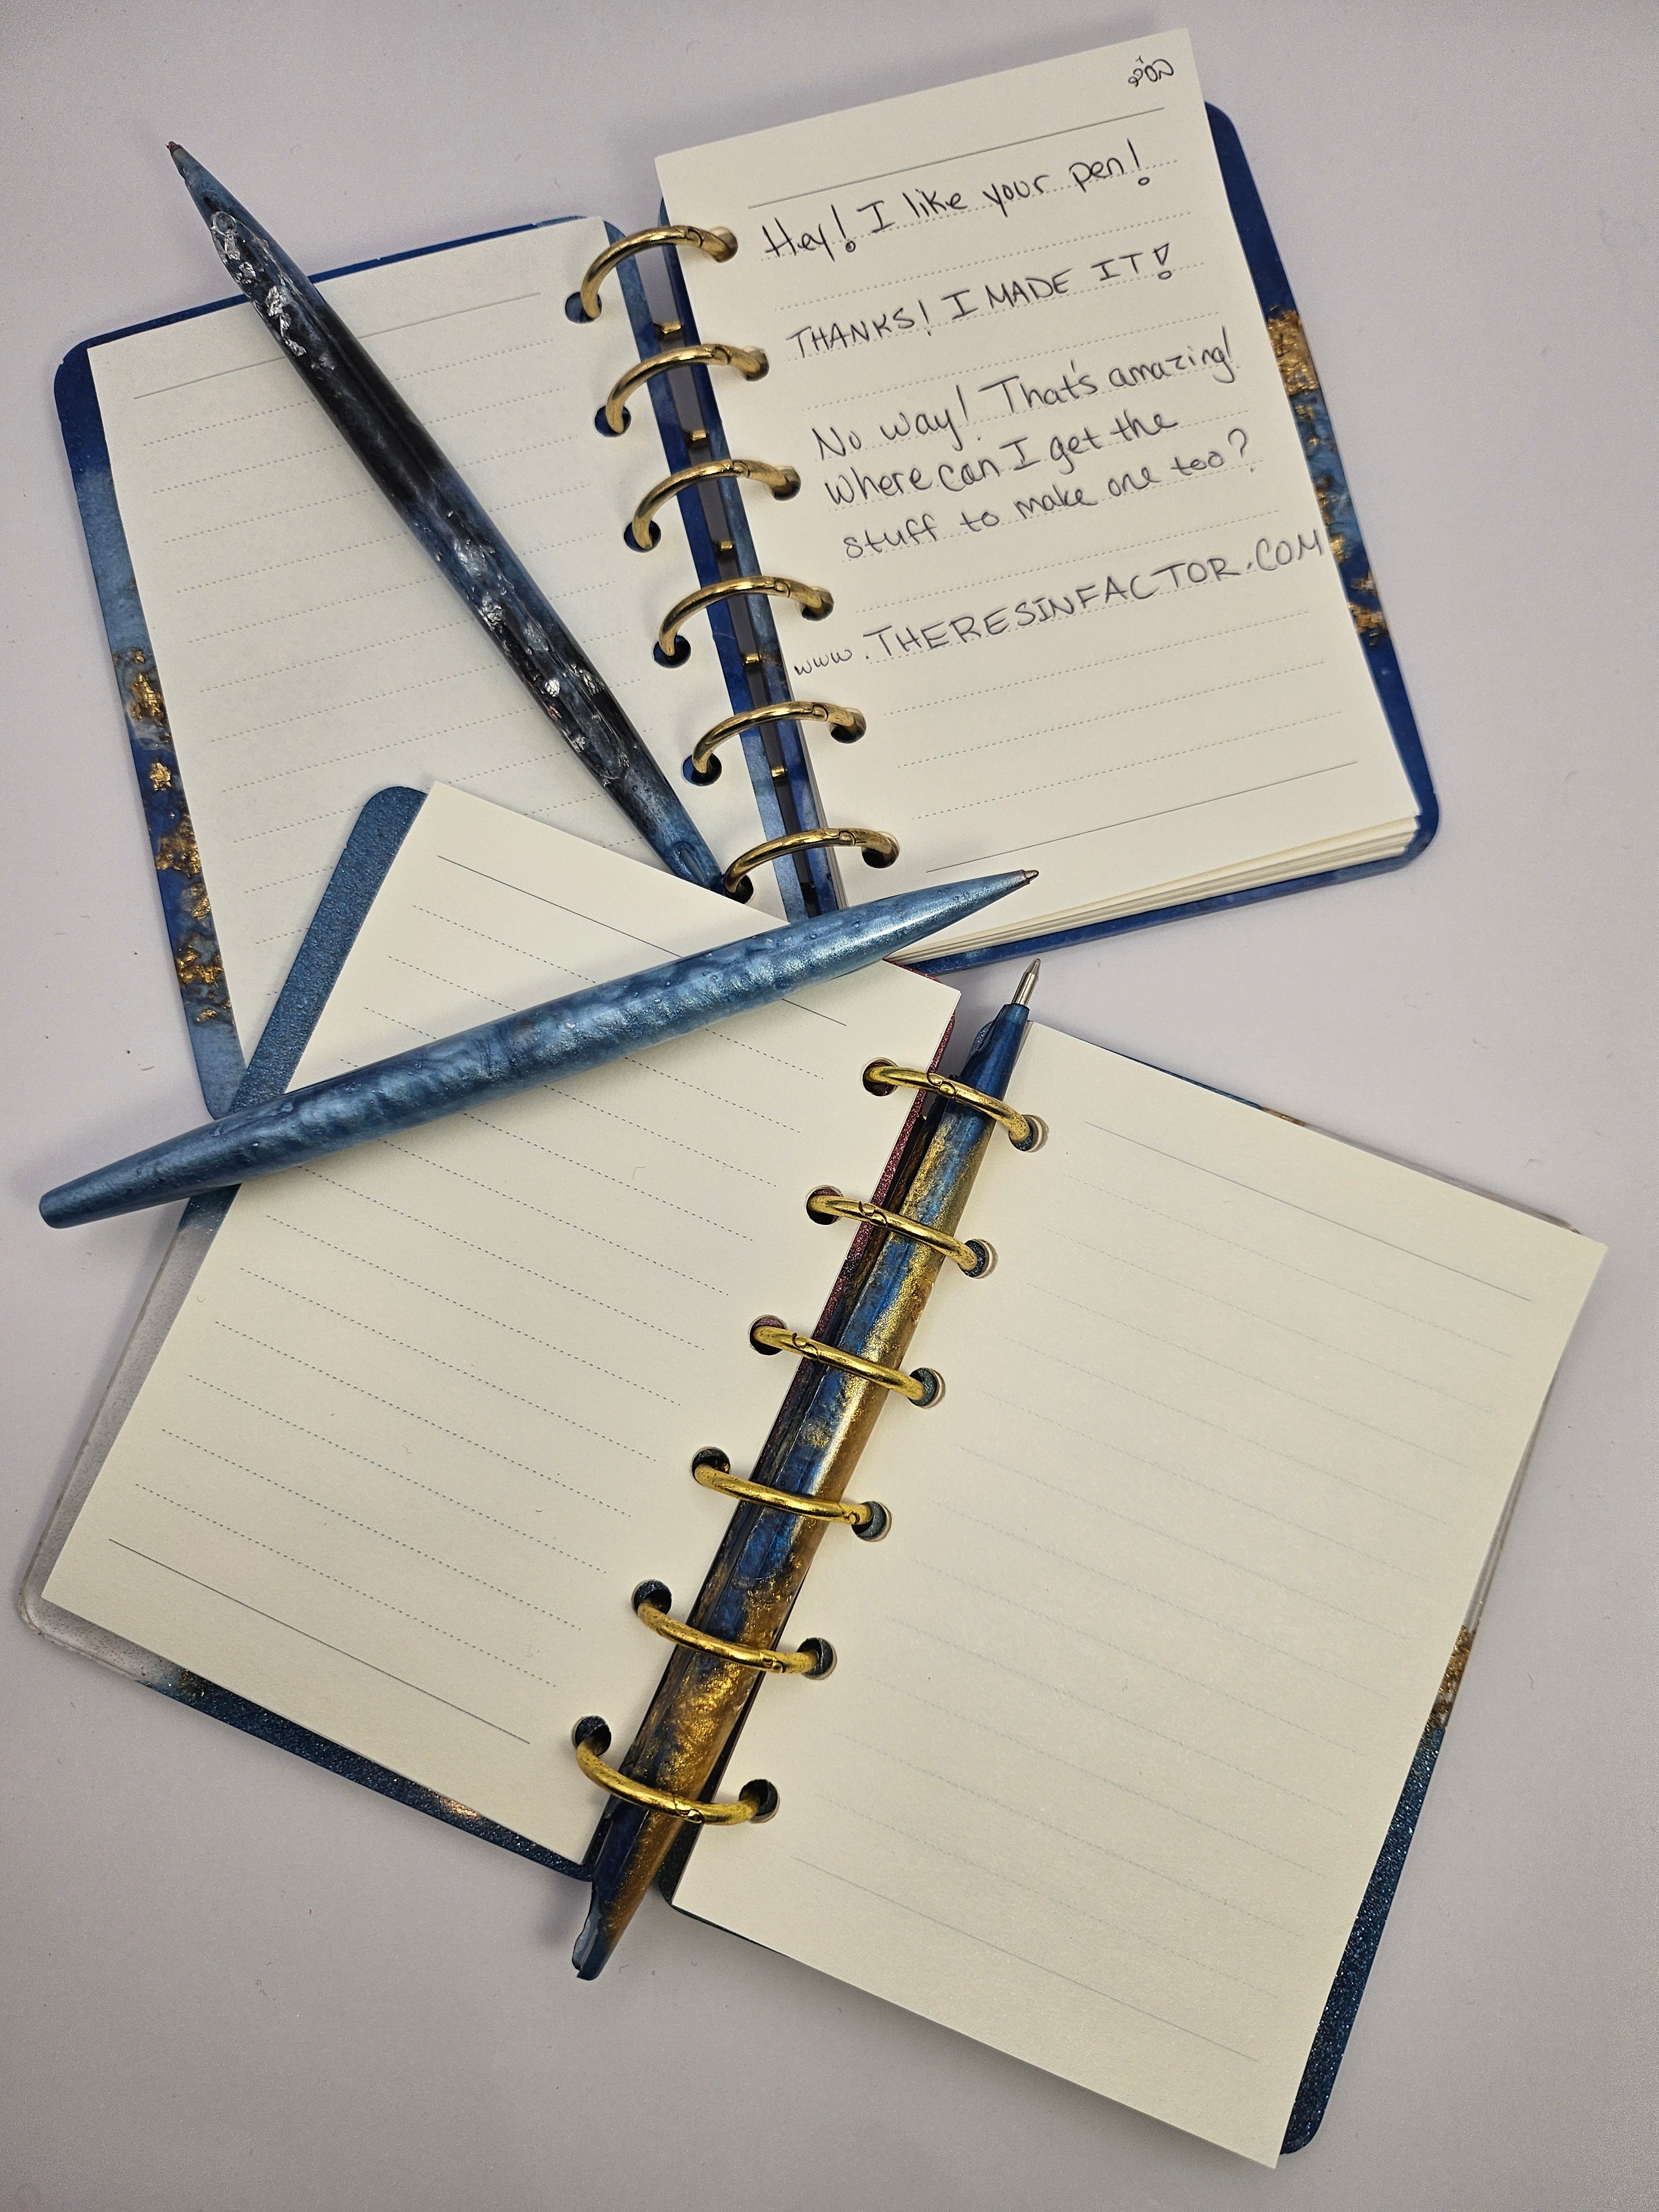 Hey! I like your pen!
THANKS! I MADE IT!
No way! That's amazing!
Where can I get the
stuff to make one too?
www.THERESINFACTOR.COM